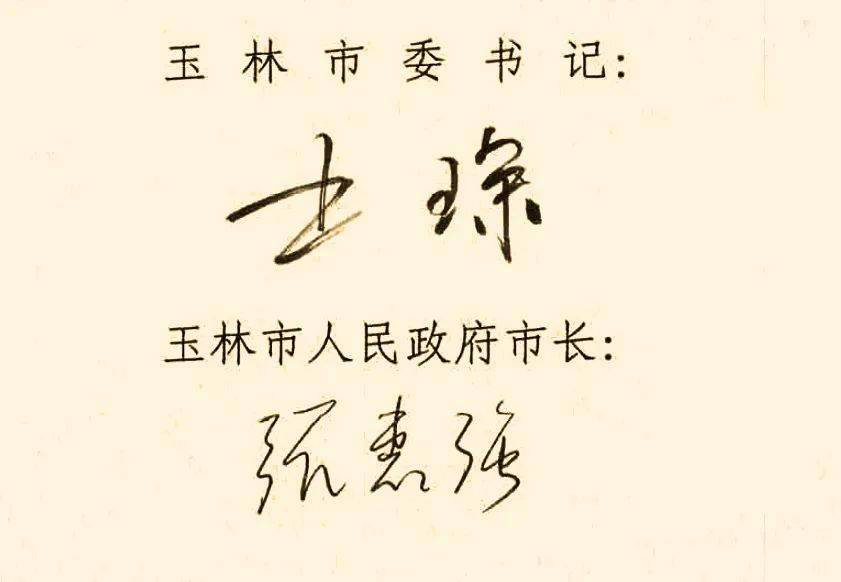 玉林市委书记:
王琛
玉林市人民政府市长:
张惠强